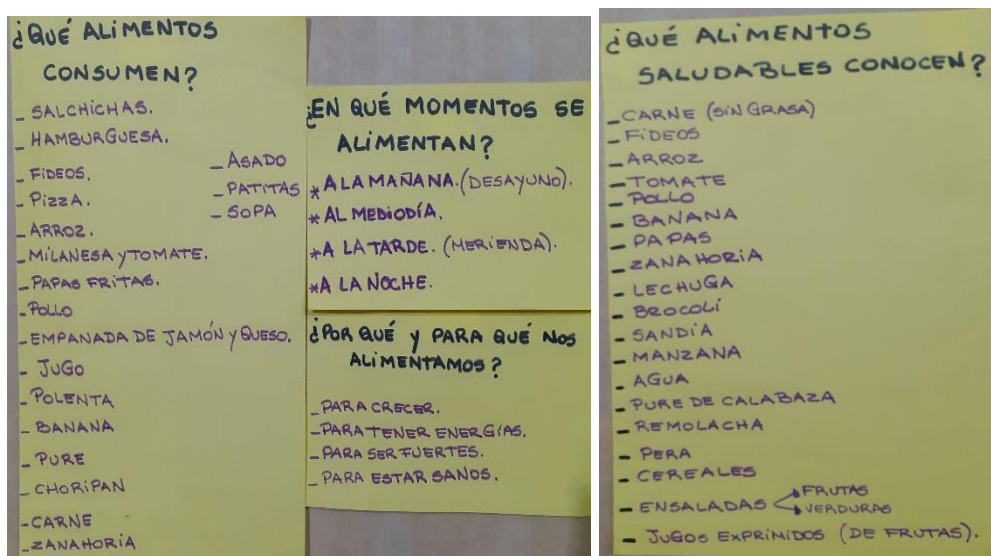 ¿QUÉ ALIMENTOS
CONSUMEN?
_ SALCHICHAS.
_ HAMBURGUESA.
_ FIDEOS.
_ PIZZA.
_ ARROZ.
_ MILANESA Y TOMATE.
_ PAPAS FRITAS.
_ POLLO
_ EMPANADA DE JAMÓN Y QUESO.
_ JUGO
_ POLENTA
_ BANANA
_ PURE
_ CHORIPAN
_ CARNE
_ ZANAHORIA
_ ASADO
_ PATITAS
_ SOPA
¿EN QUÉ MOMENTOS SE
ALIMENTAN?
* A LA MAÑANA. (DESAYUNO).
* AL MEDIODÍA.
* A LA TARDE. (MERIENDA).
* A LA NOCHE.
¿POR QUÉ Y PARA QUÉ NOS
ALIMENTAMOS?
_ PARA CRECER.
_ PARA TENER ENERGÍAS.
_ PARA SER FUERTES.
_ PARA ESTAR SANOS.
¿QUÉ ALIMENTOS
SALUDABLES CONOCEN?
_ CARNE (SIN GRASA)
_ FIDEOS
_ ARROZ
_ TOMATE
_ POLLO
_ BANANA
_ PAPAS
_ ZANAHORIA
_ LECHUGA
_ BROCOLÍ
_ SANDÍA
_ MANZANA
_ AGUA
_ PURE DE CALABAZA
_ REMOLACHA
_ PERA
_ CEREALES
_ ENSALADAS FRUTAS
VERDURAS
_ JUGOS EXPRIMIDOS (DE FRUTAS).